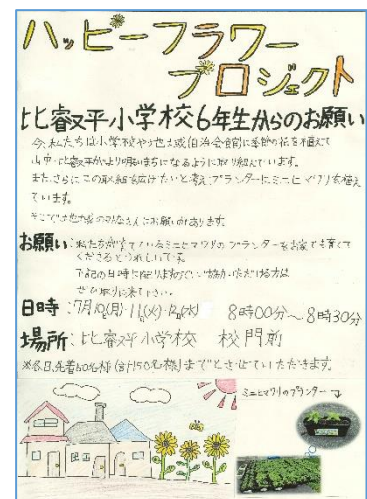 ハッピーフラワー
プロジェクト
比叡平小学校6年生からのお願い
今、私たちは小学校や地域(自治会館前に季節の花を植えて
山中・比叡平がより明るいまちになるように取り組んでいます。
また、さらにこの取組を広げたいと考え、プランターにミニヒマワリを植え
ています。
そこで地域のみなさんにお願いがあります。
お願い:私たちが育てているミニヒマワリのプランターをお家でも育てて
くださるとうれしいです。
下記の日時に配りますので、ご協力いただける方は
ぜひ取りに来て下さい。
日時:7月10(月)・11(火)・12(水) 8時00分~8時30分
場所:比叡平小学校 校門前
※各日、先着50名様(計150名様)までとさせていただきます。
ミニヒマワリのプランター